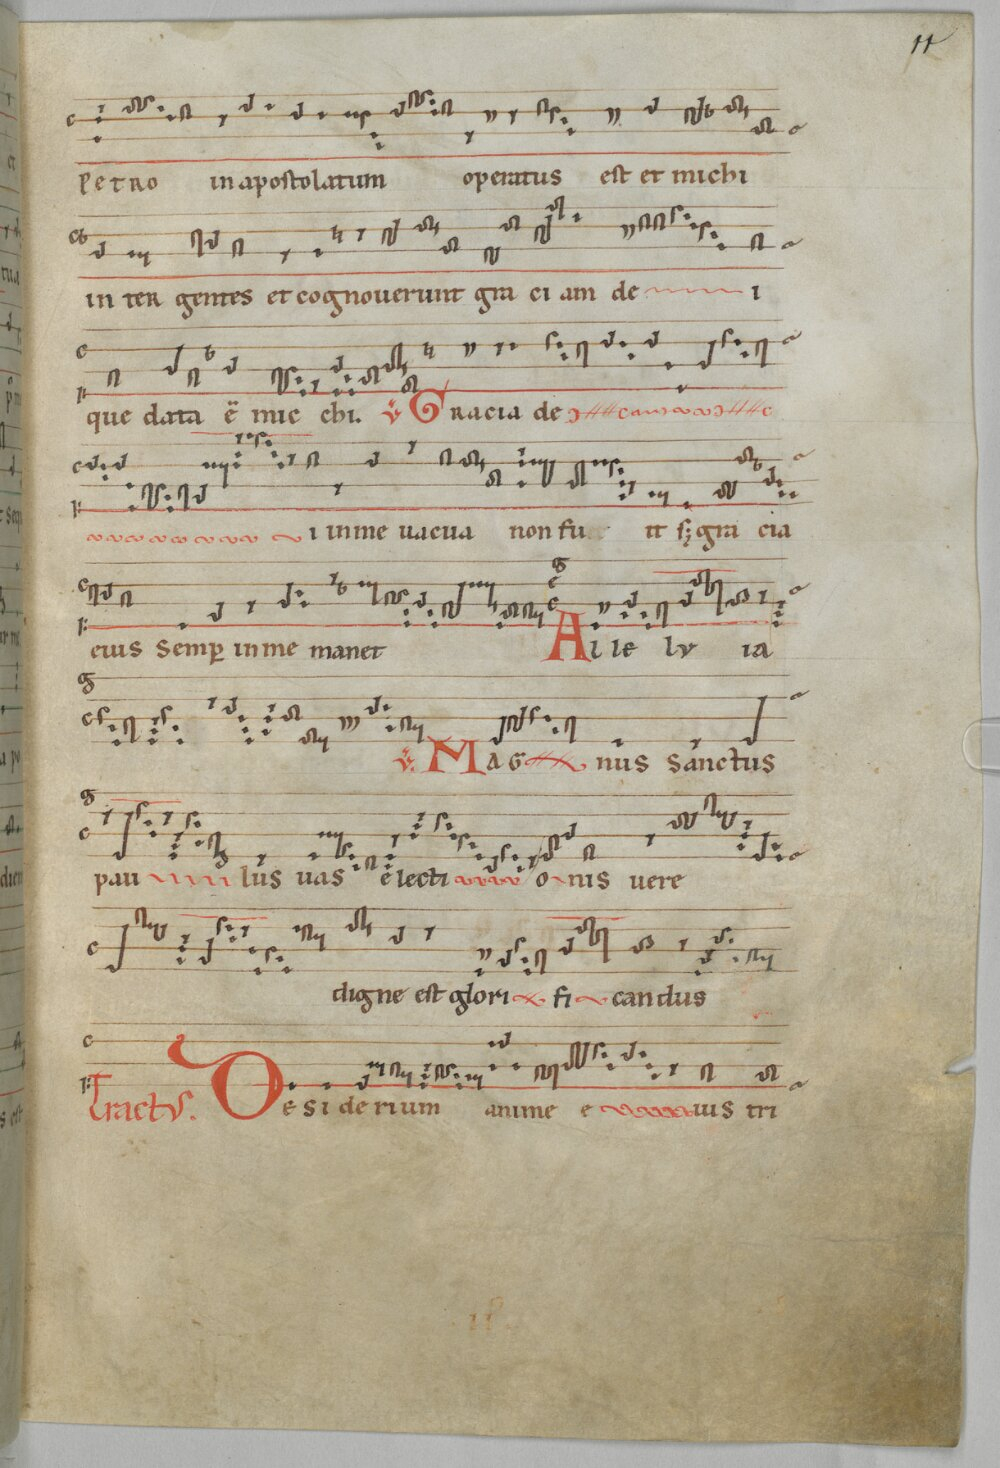 11
petro in apostolatum operatus est et michi
in ter gentes et cognouerunt gra ci am de i
que data ē mic chi. ℣ Gracia de
i in me uacua non fu it sꝫ gra cia
eius semꝑ in me manet Alle lv ia
℣. Mag nus sanctus
pau lus uas electi onis uere
digne est glori fi candus
Tractvs. Desiderium anime e ius tri